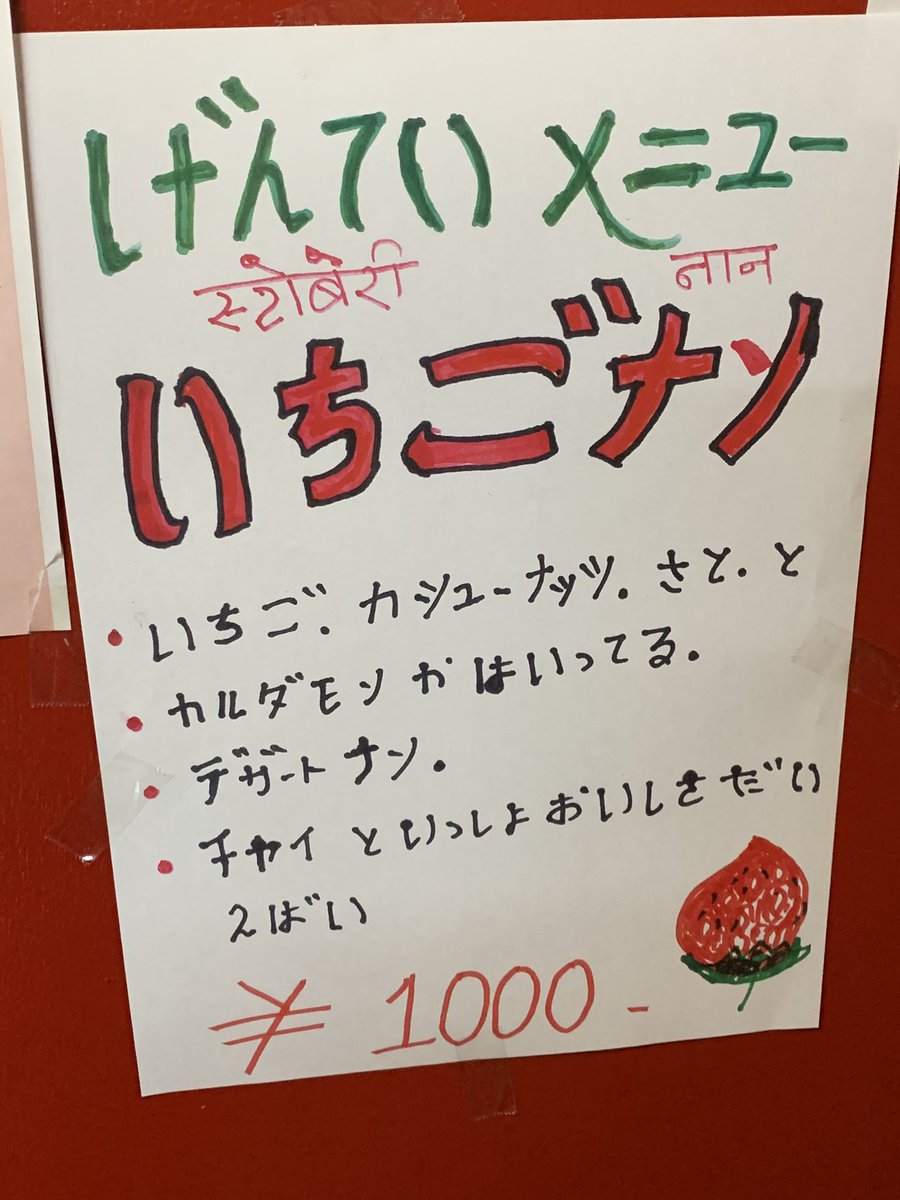 げんてい メニュー
स्ट्रोबेरी नान
いちごナン
・いちご. カシューナッツ. さと. と
・カルダモン か はいってる.
・デザート ナン.
・チャイ といっしょ おいしさ だい
えばい
¥ 1000 -